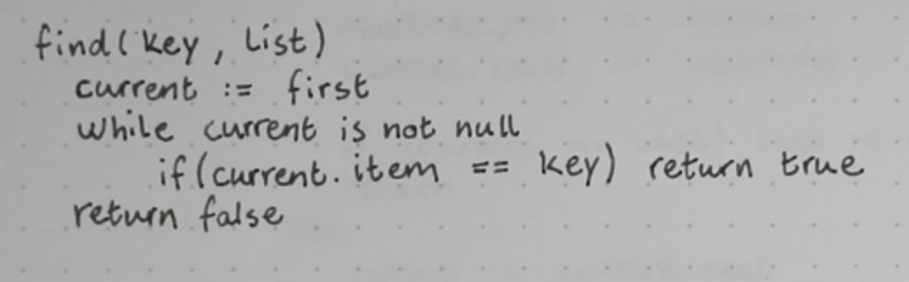 find(key, list)
current := first
while current is not null
if(current.item == key) return true
return false